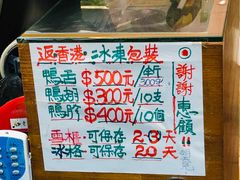 返香港：冰凍包裝
鴨舌 $500元/斤
300分
鴨翅 $300元/10支
鴨肫 $400元/10個
雪櫃·可保存 2-3天
冰格·可保存 20天
謝謝惠顧!!